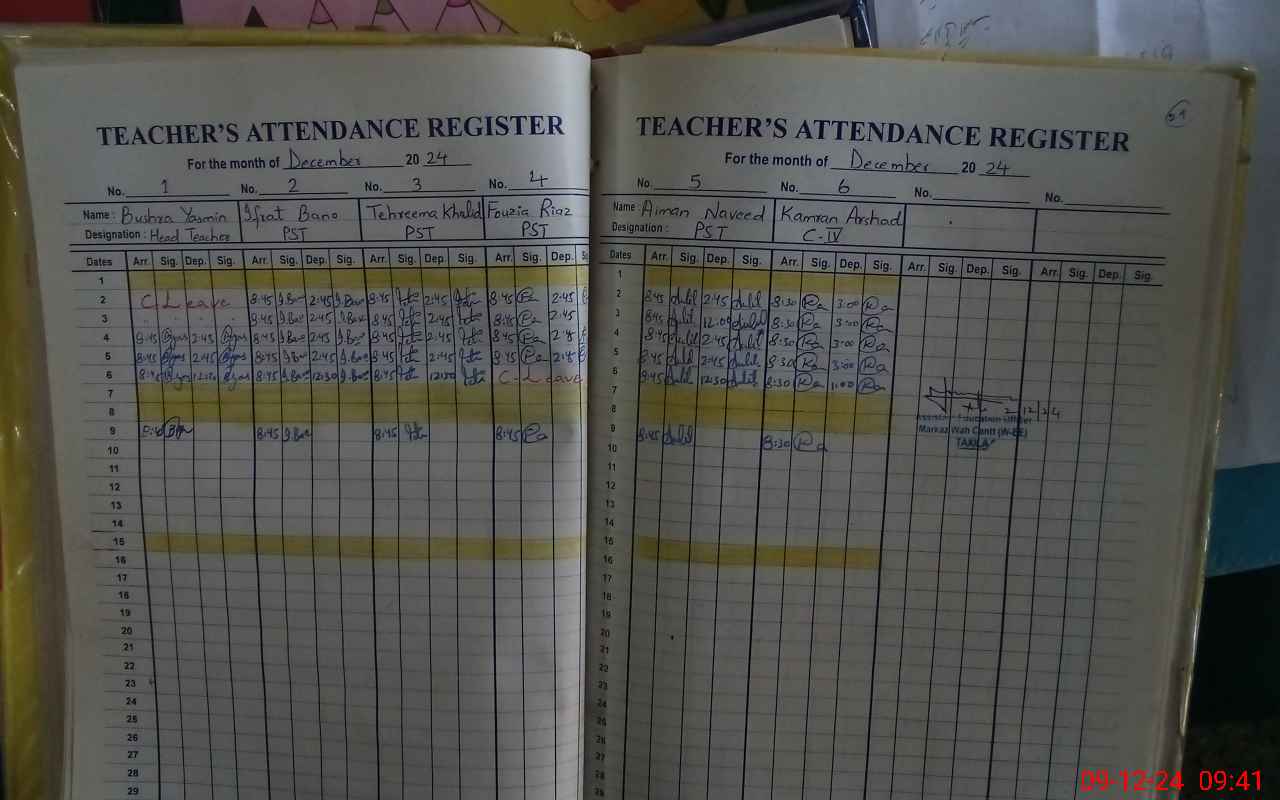 TEACHER'S ATTENDANCE REGISTER
For the month of December 2024
No. 1 No. 2 No. 3 No. 4
Name : Bushra Yasmin Ifrat Bano Tehreema Khalid Fouzia Riaz
Designation : Head Teacher PST PST PST
Dates Arr. Sig. Dep. Sig. Arr. Sig. Dep. Sig. Arr. Sig. Dep. Sig. Arr. Sig. Dep.
1
2 C. Leave 8:45 2:45 8:45 2:45 8:45 2:45
3 8:45 2:45 8:45 2:45 8:45 2:45
4 8:45 2:45 8:45 2:45 8:45 2:45 8:45 2:45
5 8:45 2:45 8:45 2:45 8:45 2:45 8:45 2:45
6 8:45 8:45 12:30 8:45 12:30 C-Leave
7
8
9 8:45 8:45 8:45 8:45
10
11
12
13
14
15
16
17
18
19
20
21
22
23
24
25
26
27
28
29
TEACHER'S ATTENDANCE REGISTER
For the month of December 2024
No. 5 No. 6 No. No.
Name : Aiman Naveed Kamran Arshad
Designation : PST C-IV
Dates Arr. Sig. Dep. Sig. Arr. Sig. Dep. Sig. Arr. Sig. Dep. Sig. Arr. Sig. Dep. Sig.
1
2 8:45 2:45 8:30 3:00
3 8:45 12:00 8:30 3:00
4 8:45 2:45 8:30 3:00
5 8:45 2:45 8:30 3:00
6 8:45 12:30 8:30 1:00
7
8
2/12/24
Assistant Education Officer
Markaz Wah Cantt (W-EE)
TAXILA
9 8:45 8:30
10
11
12
13
14
15
16
17
18
19
20
21
22
23
24
25
26
27
28
09-12-24 09:41